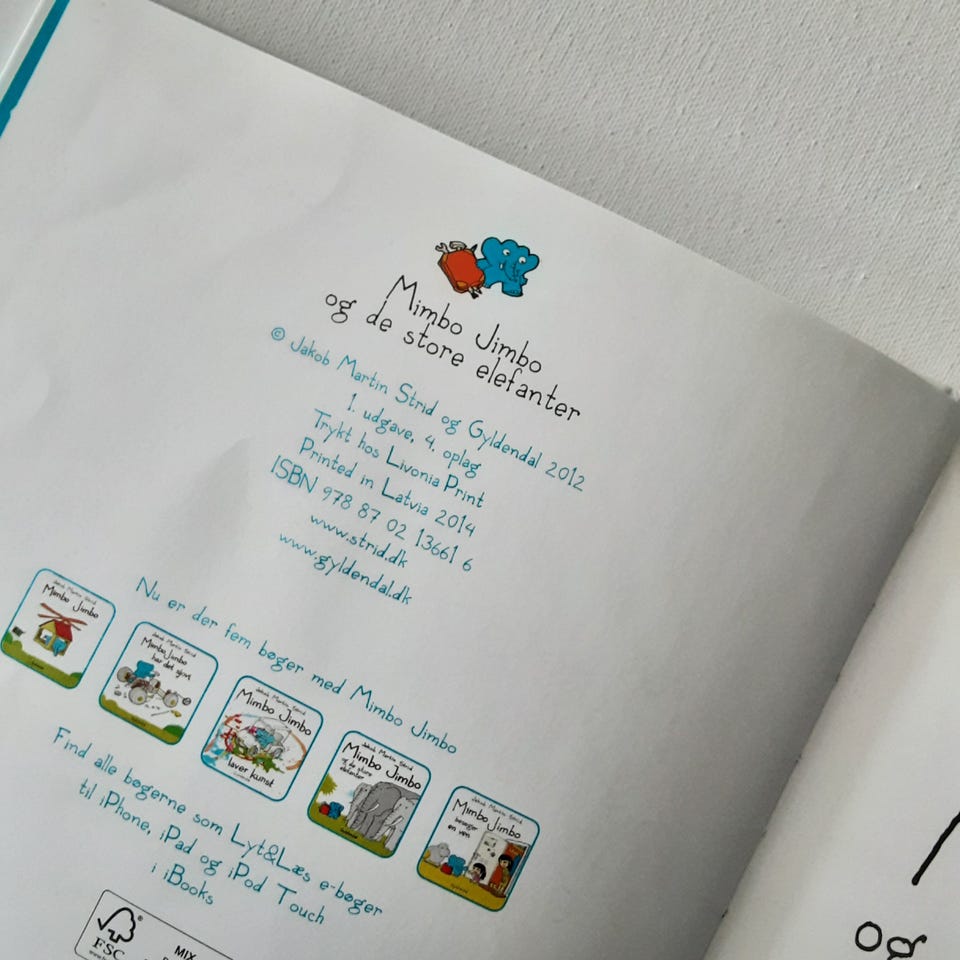 Mimbo Jimbo
og de store elefanter
© Jakob Martin Strid og Gyldendal 2012
1. udgave, 4. oplag
Trykt hos Livonia Print
Printed in Latvia 2014
ISBN 978 87 02 13661 6
www.strid.dk
www.gyldendal.dk
Nu er der fem bøger med Mimbo Jimbo
Jakob Martin Strid
Mimbo Jimbo
Jakob Martin Strid
Mimbo Jimbo
har det sjovt
Jakob Martin Strid
Mimbo Jimbo
laver kunst
Jakob Martin Strid
Mimbo Jimbo
og de store
elefanter
Jakob Martin Strid
Mimbo Jimbo
besøger
en ven
Find alle bøgerne som Lyt&Læs e-bøger
til iPhone, iPad og iPod Touch
i iBooks
FSC
MIX
og